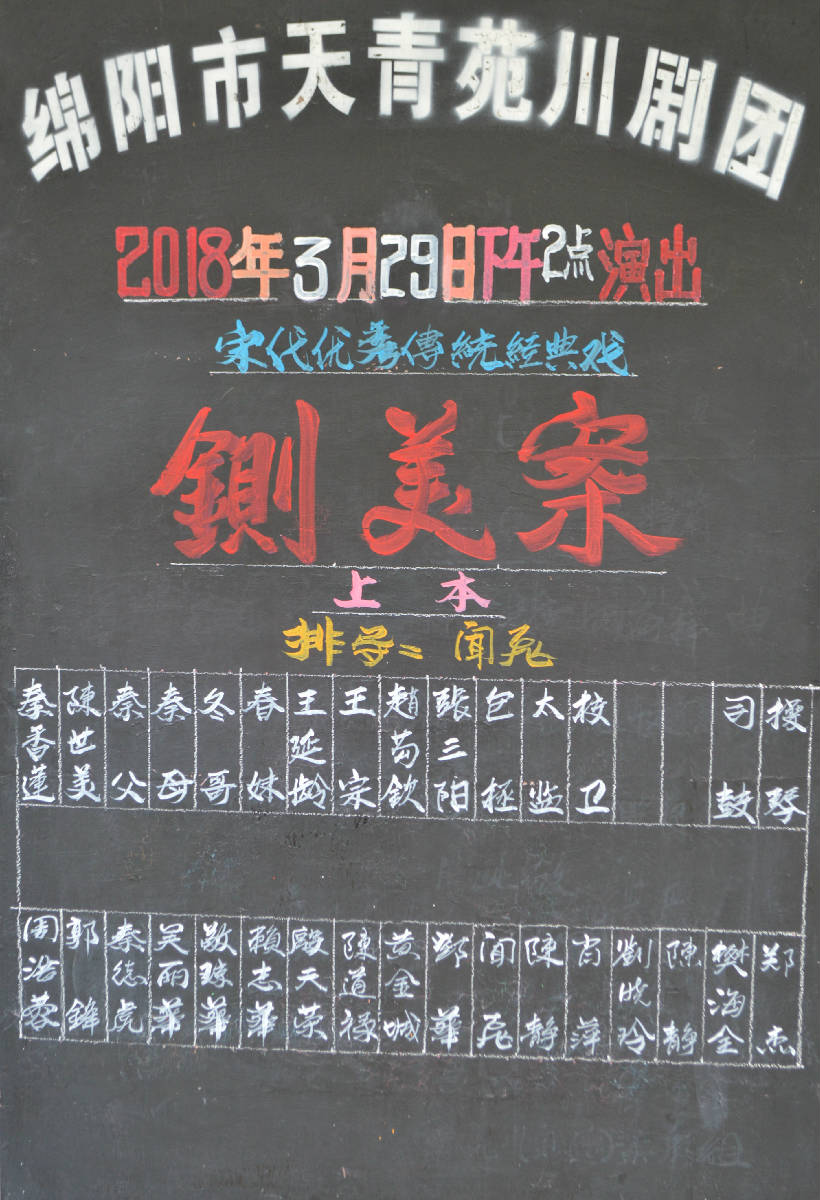 绵阳市天青苑川剧团
2018年3月29日下午2点演出
宋代优秀傳統經典戏
鍘美案
上本
排导：闻飛
秦香蓮 陳世美 秦父 秦母 冬哥 春妹 王延龄 王宗 趙芶欽 張三阳 包极 太监 校卫 司鼓 操琴
周浩蓉 郭鋒 秦德虎 吴丽華 敬琼華 賴志華 殷天荣 陳道禄 黄金城 鄧華 闻飛 陳静 肖萍 劉晓玲 陳静 樊海全 郑杰